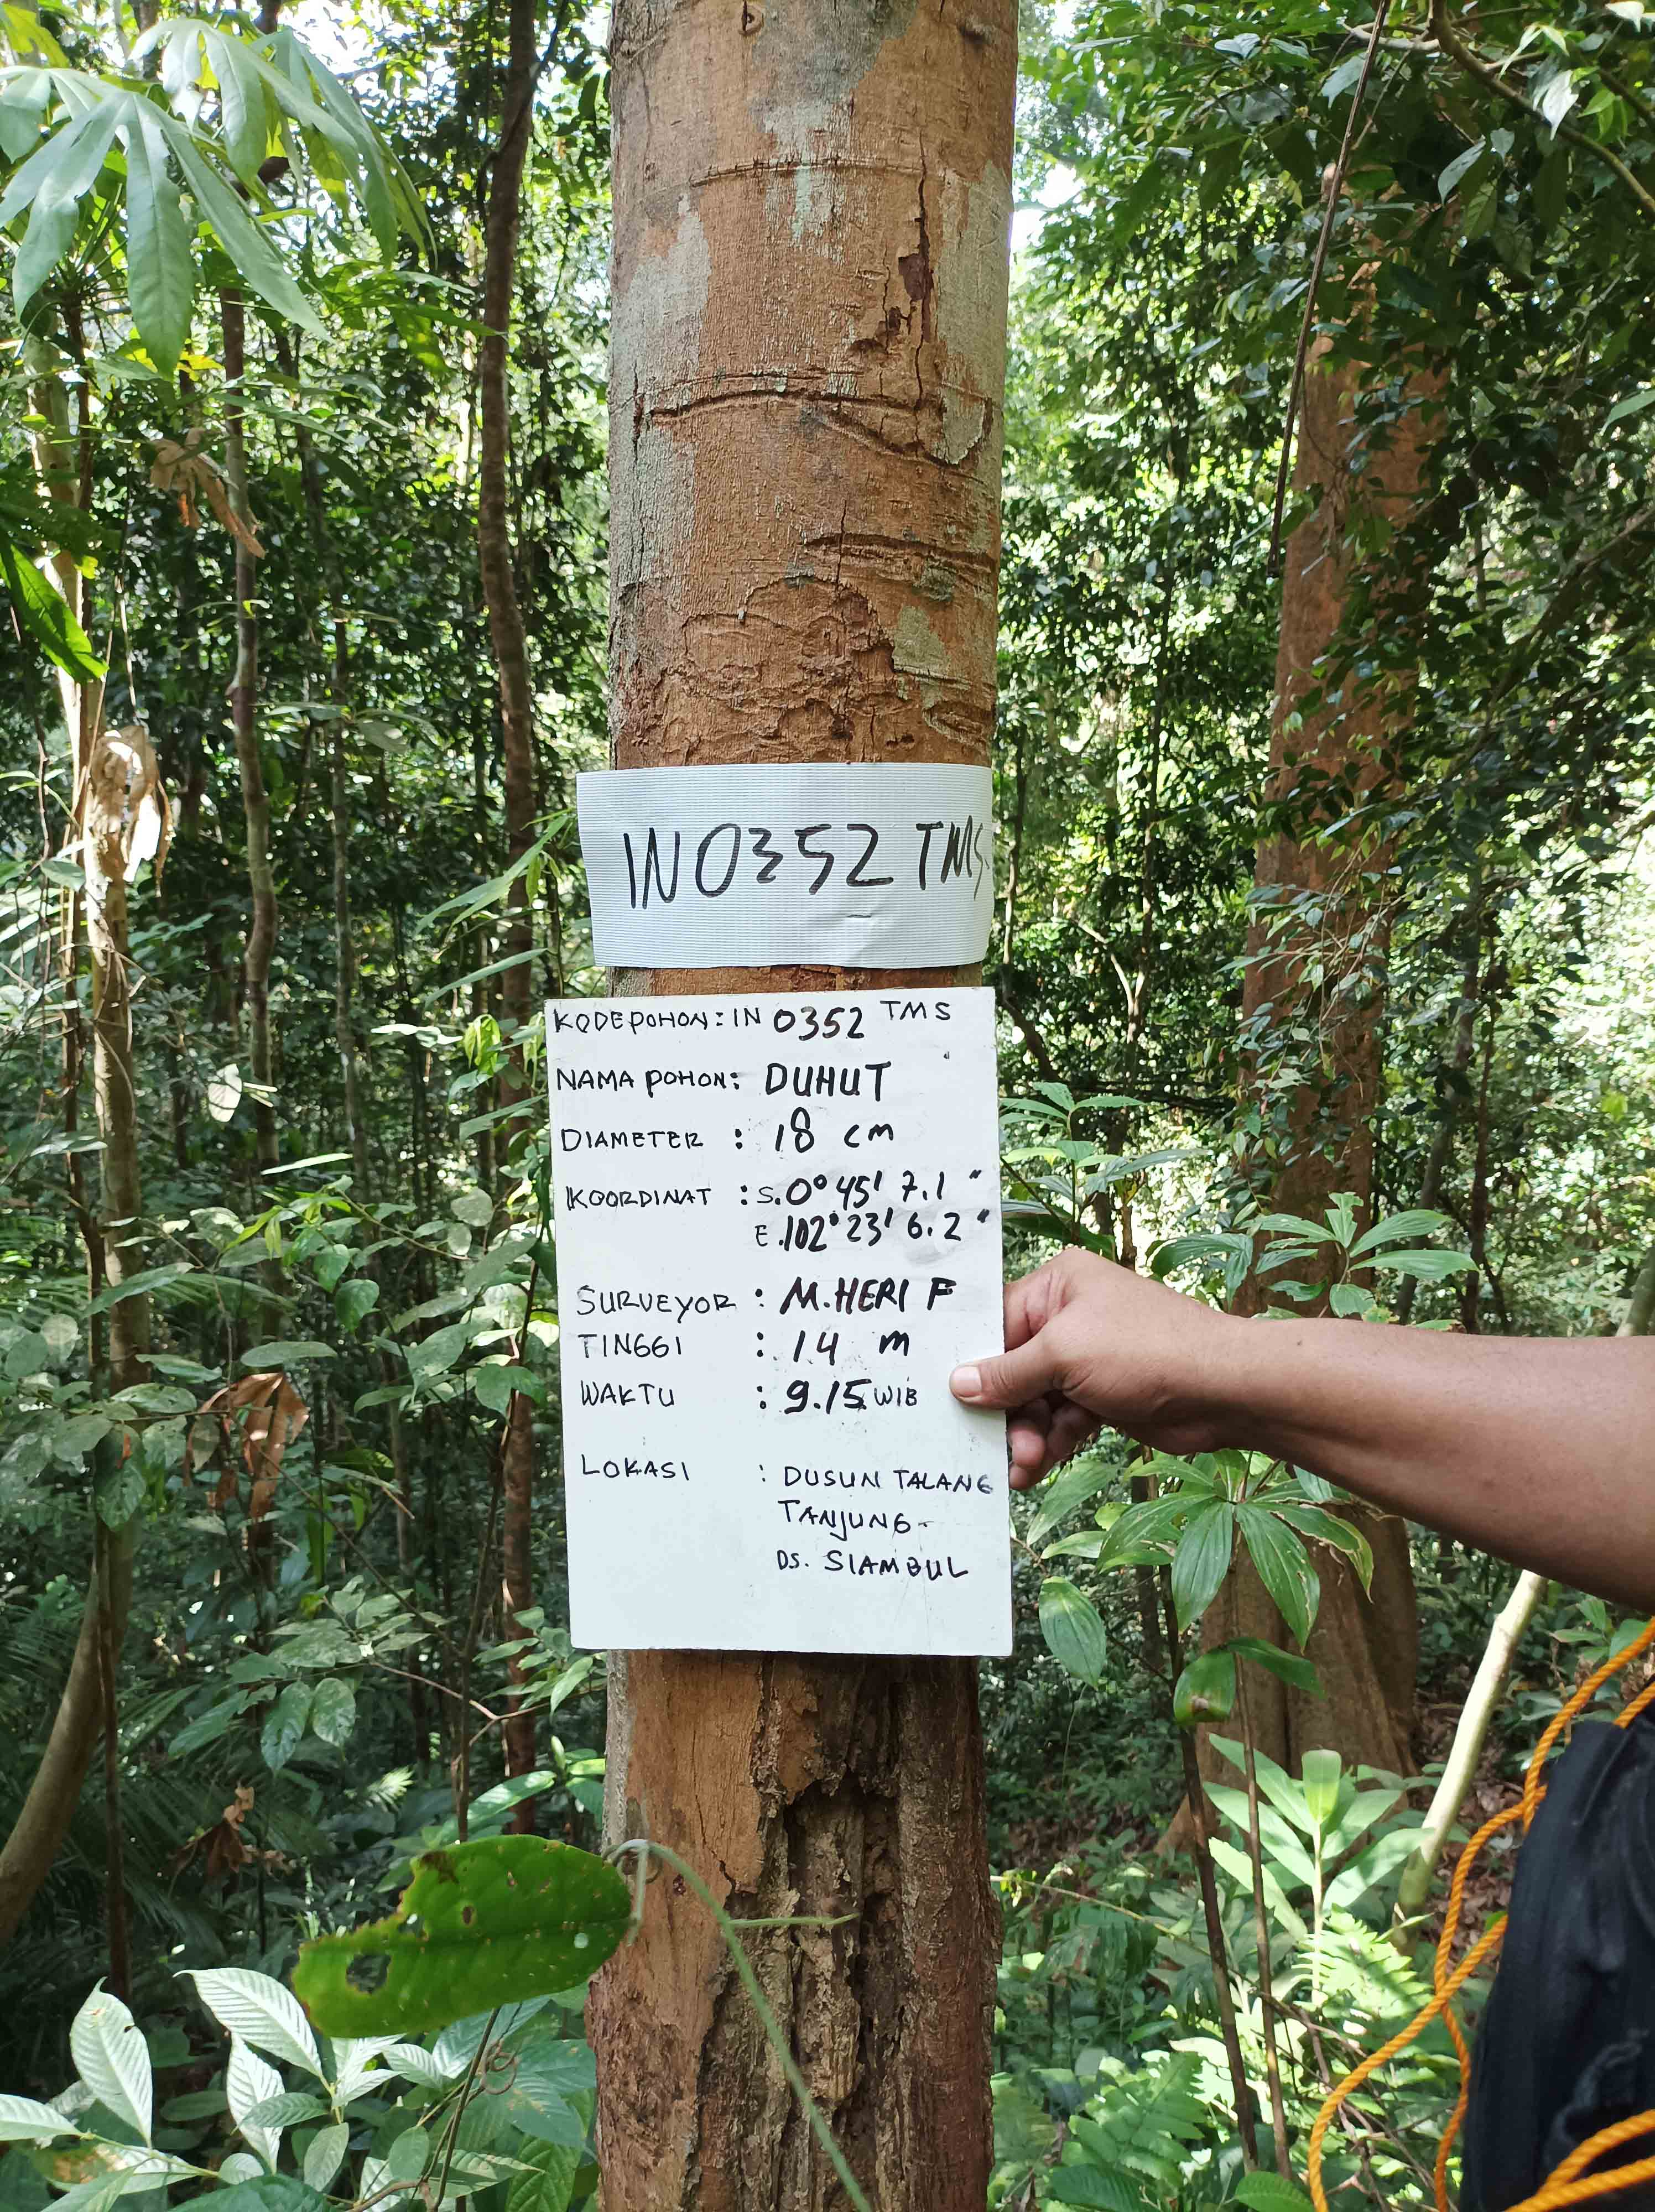 IN0352 TMS
KODE POHON: IN 0352 TMS
NAMA POHON: DUHUT
DIAMETER : 18 cm
KOORDINAT : S.0° 45' 7.1"
E.102° 23' 6.2"
SURVEYOR : M.HERI F
TINGGI : 14 m
WAKTU : 9.15 WIB
LOKASI : DUSUN TALANG
TANJUNG-
DS. SIAMBUL